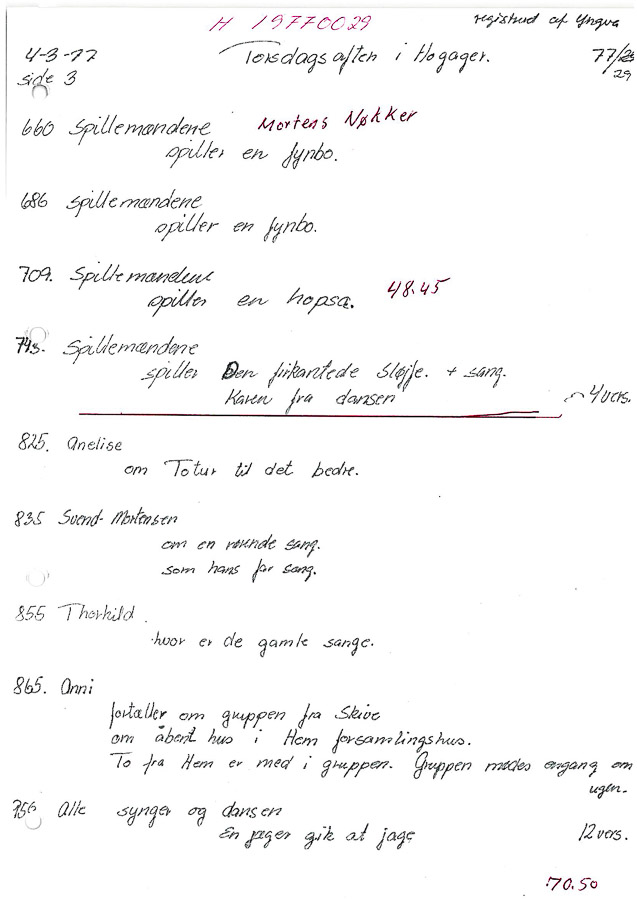 H 19770029
registreret af Yngva
4-3-77 Torsdagsaften i Hogager. 77/28
29
side 3
660 Spillemændene Mortens Nøkker
spiller en fynbo.
686 Spillemændene
spiller en fynbo.
709. Spillemændene
spiller en hopsa. 48.45
743. Spillemændene
spiller Den firkantede Sløjfe. + sang.
Karen fra dansen 4 vers.
825. Anelise
om Totur til det bedre.
835 Svend-Mortensen
om en runde sang.
som hans far sang.
855 Thorkild.
hvor er de gamle sange.
865. Anni
fortæller om gruppen fra Skive
om åbent hus i Hem forsamlingshus.
To fra Hem er med i gruppen. Gruppen mødes engang om
ugen.
956 Alle synger og dansen
En jæger gik at jage 12 vers.
70.50